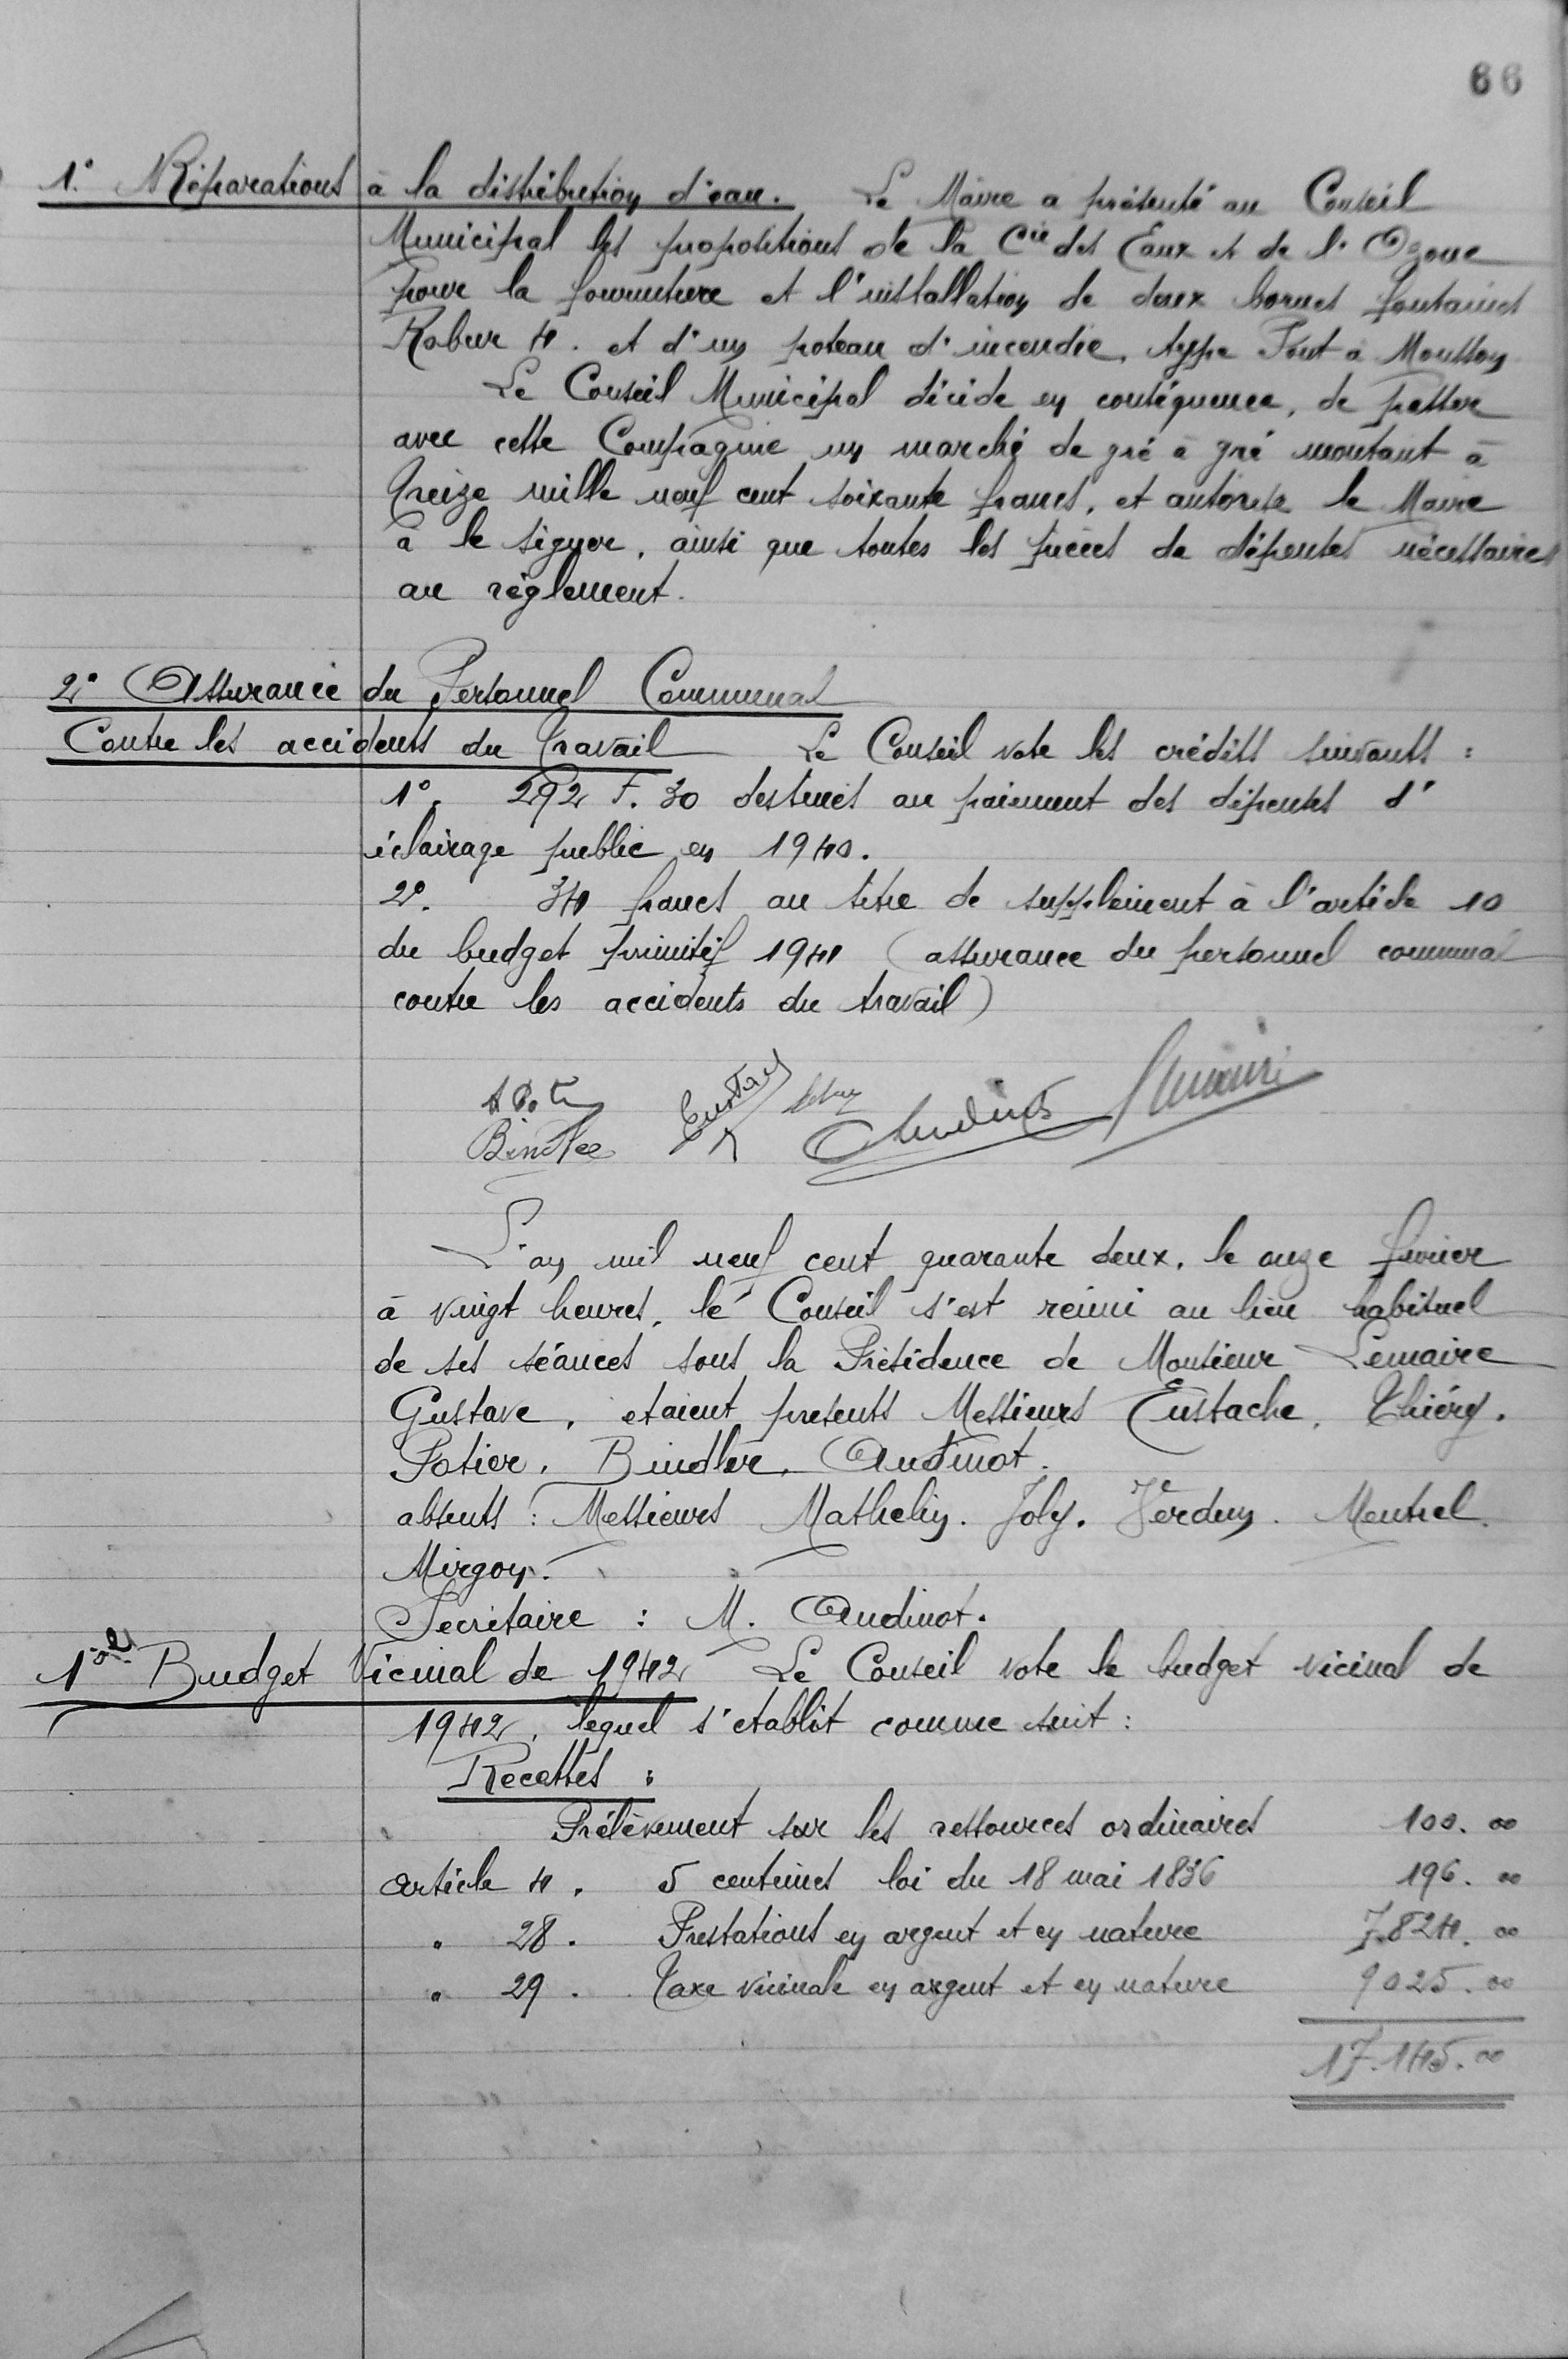 66
1.° Réparations à la distribution d'eau. Le Maire a présenté au Conseil
Municipal les propositions de la Cie des Eaux et de l'Ozone
pour la fourniture et l'installation de deux bornes fontaines
Robur 4. et d'un poteau d'incendie, type Pont à Mousson
Le Conseil Municipal décide en conséquence, de passer
avec cette Compagnie un marché de gré à gré montant à
Treize mille neuf cent soixante francs, et autorise le Maire
à le signer, ainsi que toutes les pièces de dépenses nécessaires
au règlement.
2° Assurance du Personnel Communal
Contre les accidents du Travail Le Conseil vote les crédits suivants :
1°. 292 F. 30 destinés au paiement des dépenses d'
éclairage public en 1940.
2°. 34 francs au titre de supplément à l'article 10
du budget primitif 1941 (assurance du personnel communal
contre les accidents du travail)
Eustache
Audinot
Lemaire
L'an mil neuf cent quarante deux, le onze février
à vingt heures, le Conseil s'est reúni au lieu habituel
de ses séances sous la Présidence de Monsieur Lemaire
Gustave, etaient presents Messieurs Eustache, Thiéry.
Potier. Bindler. Audinot.
absents : Messieurs Mathelin. Joly. Verdun. Mentrel.
Mirgon.
Secrétaire : M. Audinot.
1° Budget Vicinal de 1942 Le Conseil vote le budget vicinal de
1942, lequel s'etablit comme suit :
Recettes :
Prélèvement sur les ressources ordinaires 100. 00
article 4. 5 centimes loi du 18 mai 1836 196. 00
" 28. Prestations en argent et en nature 7.824. 00
" 29. Taxe vicinale en argent et en nature 9025. 00
17.145. 00